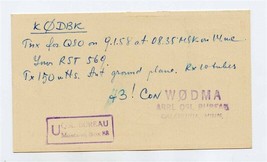 KØDBK
Tnx for QSO on 9.1.58 at 0835 MSK on 14mc
Your RST 569
Tx 150 wtts. Ant ground plane. Rx 10 tubes
73! Con
WØDMA
QSL BUREAU
BUREAU